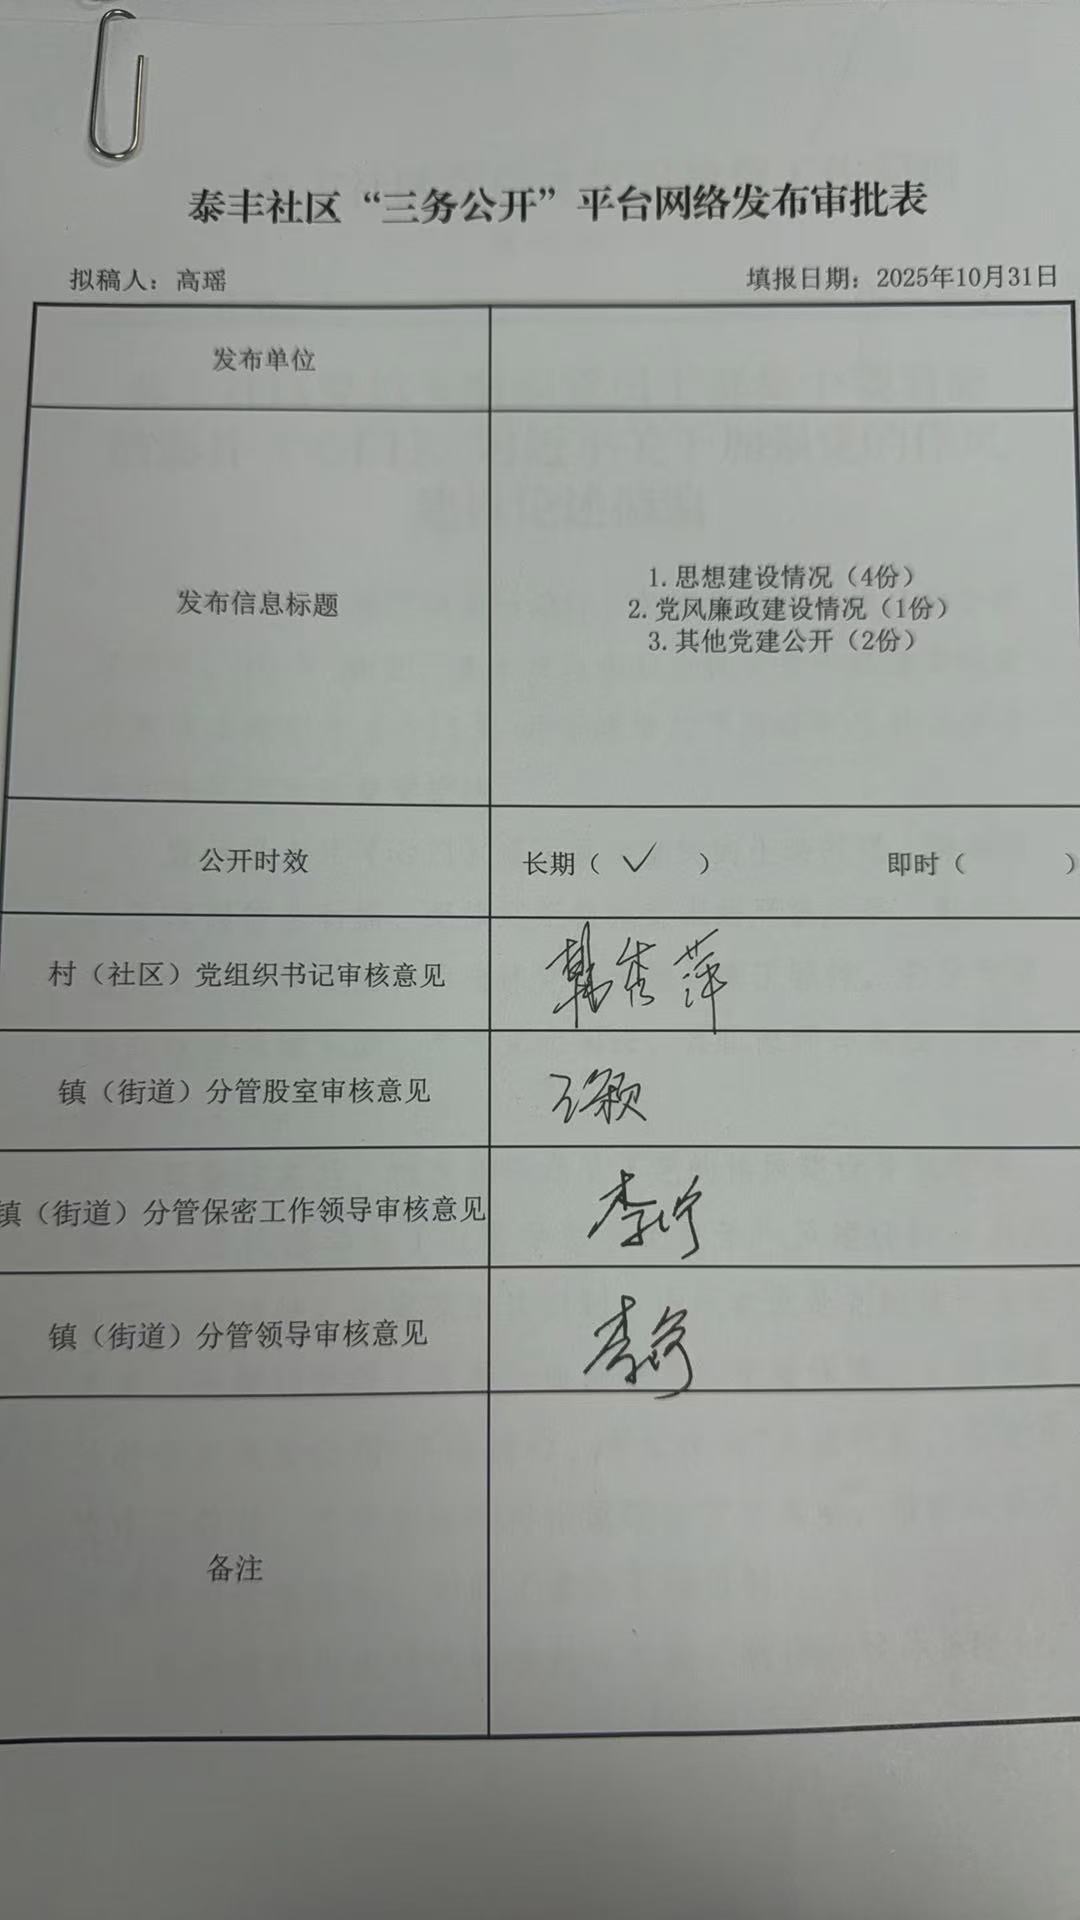 泰丰社区“三务公开”平台网络发布审批表
拟稿人：高瑶 填报日期：2025年10月31日
发布单位
发布信息标题
1.思想建设情况（4份）
2.党风廉政建设情况（1份）
3.其他党建公开（2份）
公开时效 长期（ ✓ ） 即时（ ）
村（社区）党组织书记审核意见 韩秀萍
镇（街道）分管股室审核意见 王颖
镇（街道）分管保密工作领导审核意见 李
镇（街道）分管领导审核意见 李
备注